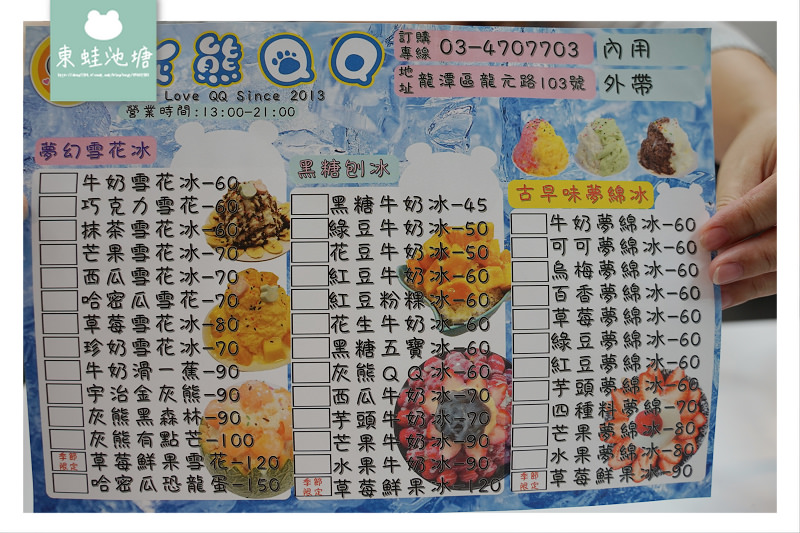 東蛙池塘
灰熊QQ
Love QQ Since 2013
營業時間:13:00-21:00
訂購專線 03-4707703
地址 龍潭區龍元路103號
內用
外帶
夢幻雪花冰
牛奶雪花冰-60
巧克力雪花-60
抹茶雪花冰-60
芒果雪花冰-70
西瓜雪花冰-70
哈密瓜雪花-70
草莓雪花冰-80
珍奶雪花冰-70
牛奶滑一蕉-90
宇治金灰熊-90
灰熊黑森林-90
灰熊有點芒-100
季節限定 草莓鮮果雪花-120
哈密瓜恐龍蛋-150
黑糖刨冰
黑糖牛奶冰-45
綠豆牛奶冰-50
花豆牛奶冰-50
紅豆牛奶冰-60
紅豆粉粿冰-60
花生牛奶冰-60
黑糖五寶冰-60
灰熊QQ冰-60
西瓜牛奶冰-70
芋頭牛奶冰-70
芒果牛奶冰-90
水果牛奶冰-90
季節限定 草莓鮮果冰-120
古早味夢綿冰
牛奶夢綿冰-60
可可夢綿冰-60
烏梅夢綿冰-60
百香夢綿冰-60
草莓夢綿冰-60
綠豆夢綿冰-60
紅豆夢綿冰-60
芋頭夢綿冰-60
四種料夢綿-70
芒果夢綿冰-80
水果夢綿冰-80
季節限定 草莓鮮果冰-90